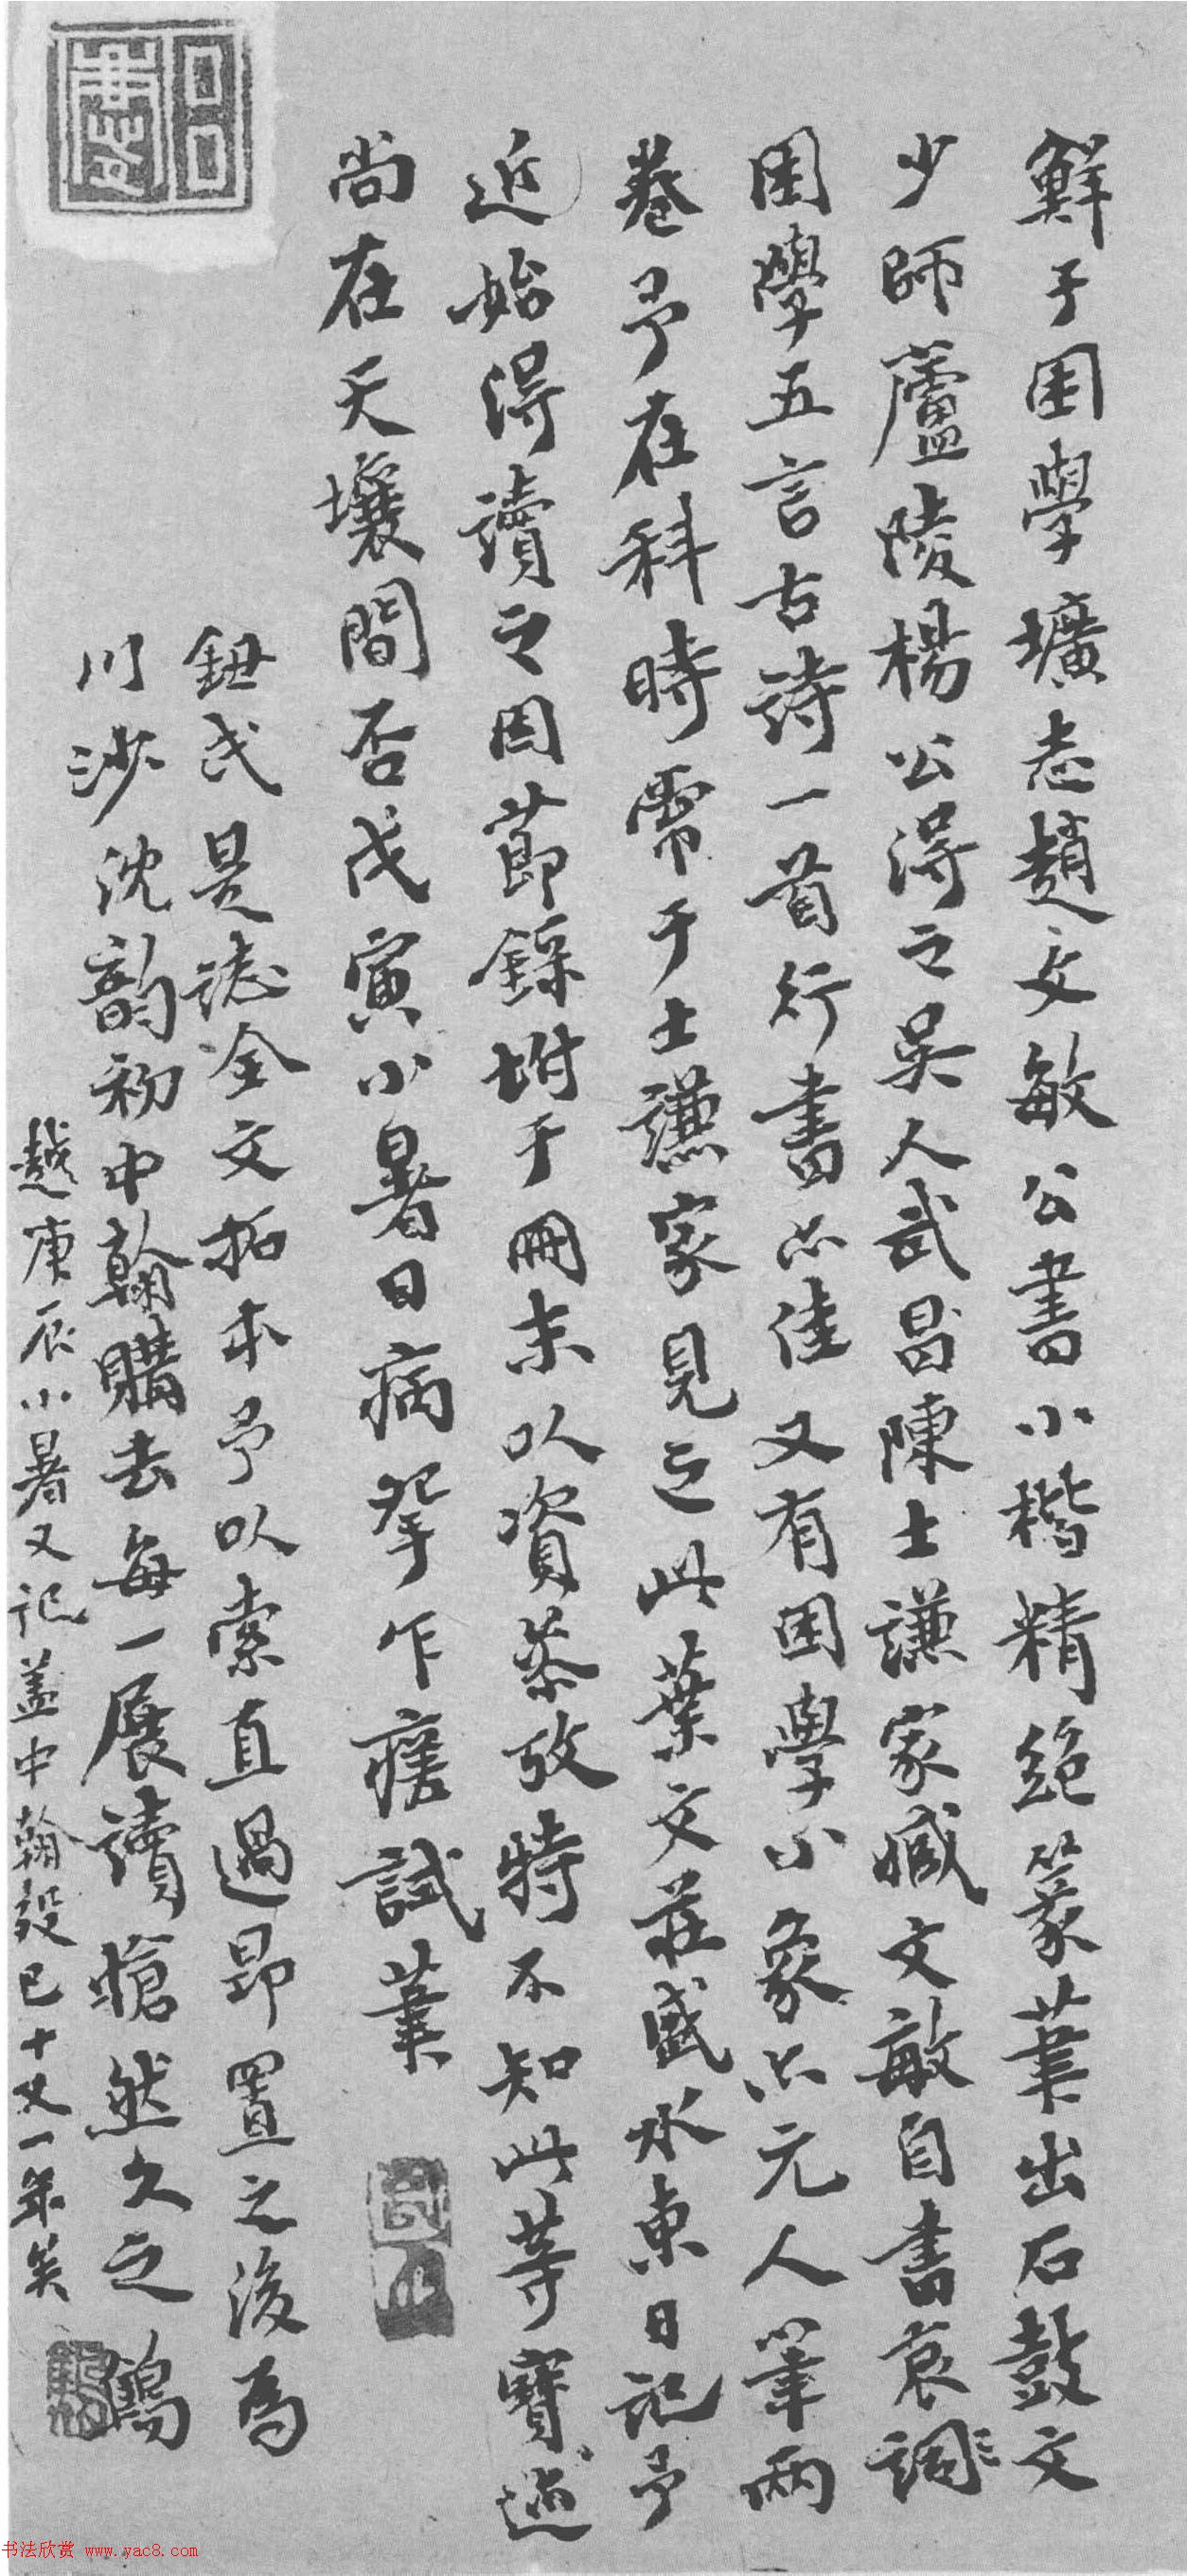 鮮于困學壙志趙文敏公書小楷精絕篆筆出石鼓文
少師蘆陵楊公得之吳人武昌陳士謙家臧文敏自書哀詞
困學五言古詩一首行書亦佳又有困學小象亦元人筆兩
卷予在科時常于士謙家見之此葉文莊盛水東日記予
近始得讀之因節錄坿于冊末以資叅攷特不知此等寶迹
尚在天壤間否戊寅小暑日病拏乍痊試筆
鈕氏是誌全文拓本予以索直過昂置之後為
川沙沈韵初中翰購去每一展讀愴然久之 鶴
越庚辰小暑又記蓋中翰歿已十又一年矣
书法欣赏 www.yac8.com